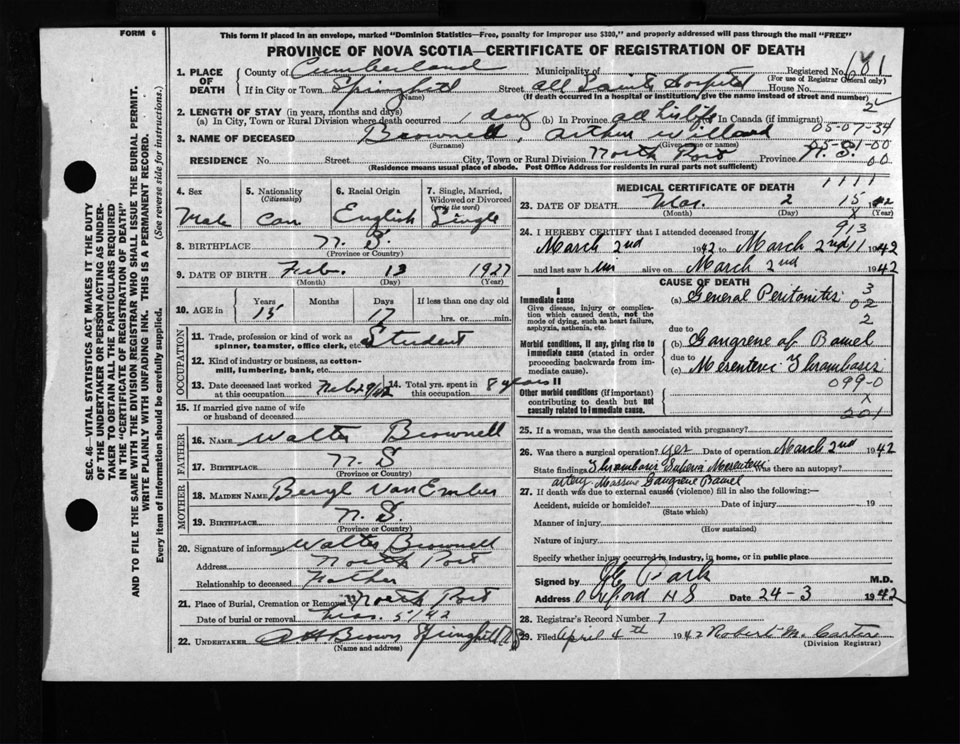 FORM 6
This form if placed in an envelope, marked "Dominion Statistics—Free, penalty for improper use $300," and properly addressed will pass through the mail "FREE"
PROVINCE OF NOVA SCOTIA—CERTIFICATE OF REGISTRATION OF DEATH
SEC. 46—VITAL STATISTICS ACT MAKES IT THE DUTY
OF THE UNDERTAKER OR PERSON ACTING AS UNDER-
TAKER TO OBTAIN ALL THE PARTICULARS REQUIRED
IN THE "CERTIFICATE OF REGISTRATION OF DEATH"
AND TO FILE THE SAME WITH THE DIVISION REGISTRAR WHO SHALL ISSUE THE BURIAL PERMIT.
WRITE PLAINLY WITH UNFADING INK. THIS IS A PERMANENT RECORD.
Every item of information should be carefully supplied. (See reverse side for instructions.)
1. PLACE OF DEATH
County of Cumberland Municipality of Registered No. 681
(For use of Registrar General only)
If in City or Town Springhill Street All Saints Hospital House No.
(Name) (If death occurred in a hospital or institution, give the name instead of street and number)
2. LENGTH OF STAY (in years, months and days)
(a) In City, Town or Rural Division where death occurred 1 day (b) In Province all his life (c) In Canada (if immigrant)
05-07-34
3. NAME OF DECEASED Brownell, Arthur Willard 05-01-00
(Surname) (Given name or names)
RESIDENCE No. Street City, Town or Rural Division North Port Province N. S. 00
(Residence means usual place of abode. Post Office Address for residents in rural parts not sufficient)
4. Sex Male
5. Nationality (Citizenship) Can
6. Racial Origin English
7. Single, Married, Widowed or Divorced (write the word) Single
8. BIRTHPLACE N. S.
(Province or Country)
9. DATE OF BIRTH Feb. 13 1927
(Month) (Day) (Year)
10. AGE IN Years 15 Months Days 17 If less than one day old hrs. or min.
OCCUPATION
11. Trade, profession or kind of work as spinner, teamster, office clerk, etc. Student
12. Kind of industry or business, as cotton-mill, lumbering, bank, etc.
13. Date deceased last worked at this occupation
14. Total yrs. spent in this occupation 8 years
15. If married give name of wife or husband of deceased
FATHER
16. NAME Walter Brownell
17. BIRTHPLACE N. S
(Province or Country)
MOTHER
18. MAIDEN NAME Beryl Van Ember
19. BIRTHPLACE N. S.
(Province or Country)
20. Signature of informant Walter Brownell
Address North Port
Relationship to deceased Father
21. Place of Burial, Cremation or Removal North Port
Date of burial or removal Mar. 5/42
22. UNDERTAKER Brown Springhill N S
(Name and address)
MEDICAL CERTIFICATE OF DEATH 1111
23. DATE OF DEATH Mar. 2 15 42
(Month) (Day) X (Year)
913
24. I HEREBY CERTIFY that I attended deceased from
March 2nd 1942 to March 2nd 11 1942
and last saw him alive on March 2nd 1942
CAUSE OF DEATH
I
Immediate cause
Give disease, injury or complication which caused death, not the mode of dying, such as heart failure, asphyxia, asthenia, etc.
(a) General Peritonitis 3
02
2
due to
Morbid conditions, if any, giving rise to immediate cause (stated in order proceeding backwards from immediate cause).
(b) Gangrene of Bowel
due to
(c) Mesenteric Thrombosis
099-0
II
Other morbid conditions (if important) contributing to death but not causally related to immediate cause.
X
201
25. If a woman, was the death associated with pregnancy?
26. Was there a surgical operation? yes Date of operation March 2nd 1942
State findings Thrombosis Superior Mesenteric Was there an autopsy?
artery Massive Gangrene Bowel
27. If death was due to external causes (violence) fill in also the following:—
Accident, suicide or homicide? Date of injury 19
(State which)
Manner of injury
(How sustained)
Nature of injury
Specify whether injury occurred in industry, in home, or in public place
Signed by Park M.D.
Address Oxford N S Date 24-3 1942
28. Registrar's Record Number 7
29. Filed April 4th 1942 Robert M. Carter
(Division Registrar)